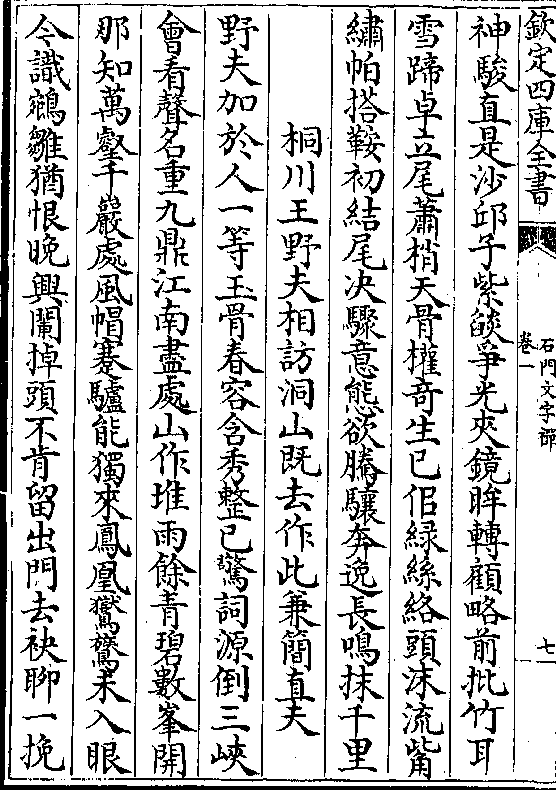 欽定四庫全書
石門文字禪
卷一
七
神駿直是沙邱子紫燄爭光夾鏡眸轉顧略前批竹耳
雪蹄卓立尾蕭梢天骨權奇生已佀緑絲絡頭沫流觜
繡帕搭鞍初結尾决驟意態欲騰驤奔逸長鳴抹千里
桐川王野夫相訪洞山既去作此兼簡直夫
野夫加於人一等玉骨春容含秀整已驚詞源倒三峽
會看聲名重九鼎江南盡處山作堆雨餘青碧數峯開
那知萬壑千巖處風帽蹇驢能獨來鳳凰鸑鷟未入眼
今識鵷雛猶恨晚興闌掉頭不肯留出門去袂聊一挽